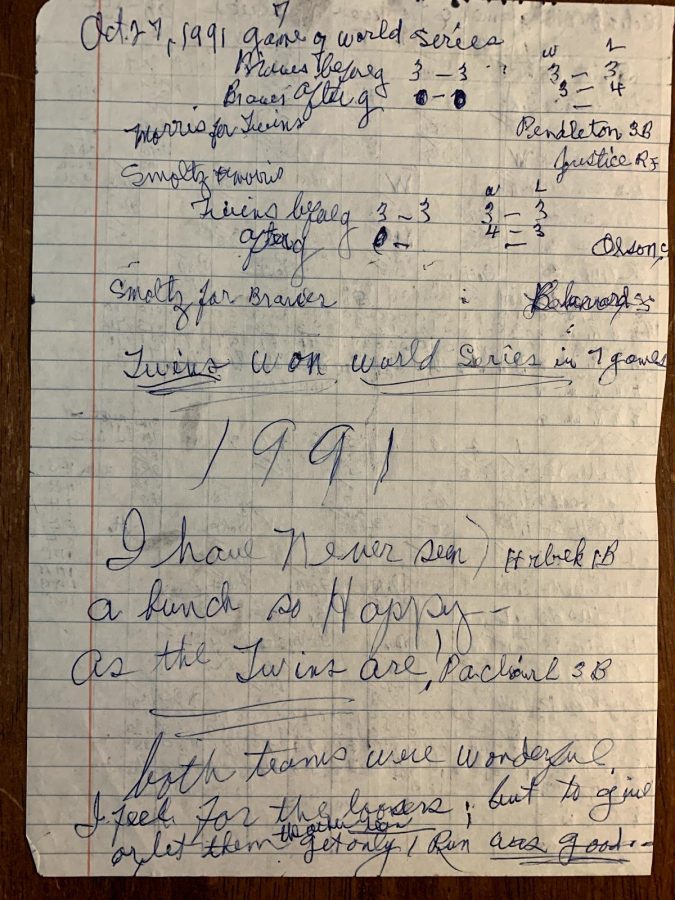 7
Oct. 27, 1991 game of world series
W L
Braves before g 3 - 3 " 3 - 3
Braves after g 0 - 0 3 - 4
Morris for Twins Pendleton 3B
Justice RF
Smoltz Morris
W L
Twins before g 3 - 3 3 - 3
after g - 4 - 3
Olson, c
Smoltz for Braves
Twins won world series in 7 games
1991
I have Never seen) Hrbek 1B
a bunch so Happy -
as the Twins are, 3B
both teams were wonderful
I feel for the loosers; but to give
the other team
or let them get only 1 Run was good. -